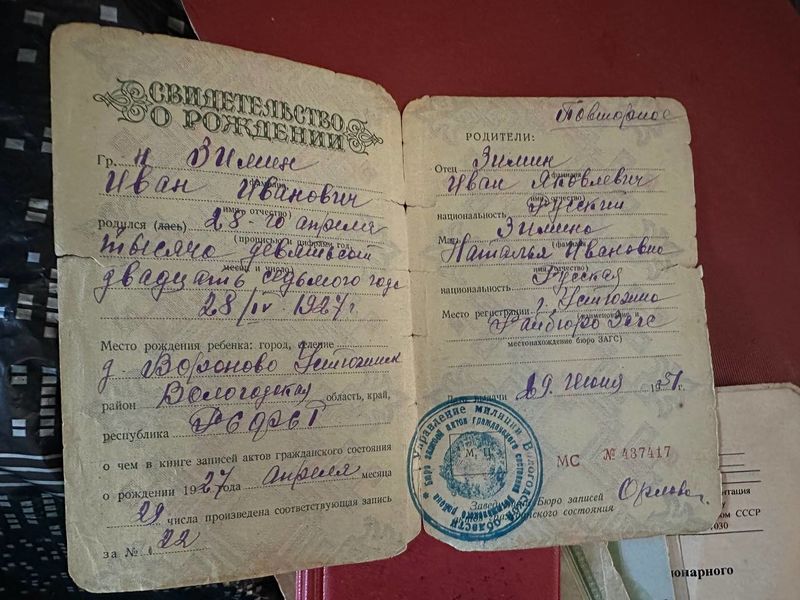 СВИДЕТЕЛЬСТВО
О РОЖДЕНИИ
Гр. н Зимин
(фамилия)
Иван Иванович
(имя, отчество)
родился (лась) 28-го апреля
(прописью и цифрами год,
тысяча девятьсот
месяц и число)
двадцать седьмого года
28/IV 1927 г.
Место рождения ребенка: город, селение
д. Вороново Устюженск
район Вологодская область, край,
республика РСФСР
о чем в книге записей актов гражданского состояния
о рождении 1927 года апреля месяца
29 числа произведена соответствующая запись
за № 22
Повторное
РОДИТЕЛИ:
Отец Зимин
(фамилия)
Иван Яковлевич
(имя, отчество)
национальность Русский
Мать Зимина
(фамилия)
Наталья Ивановна
(имя, отчество)
национальность Русская
Место регистрации г. Устюжна
(наименование и
Райбюро Загс
местонахождение бюро ЗАГС)
Дата выдачи 29 июня 1951 г.
Управление милиции Вологодской области
Бюро записей актов гражданского состояния
района
М. П.
МС № 437417
Бюро записей
гражданского состояния
Орлова
ентация
ом СССР
1030
ионарного